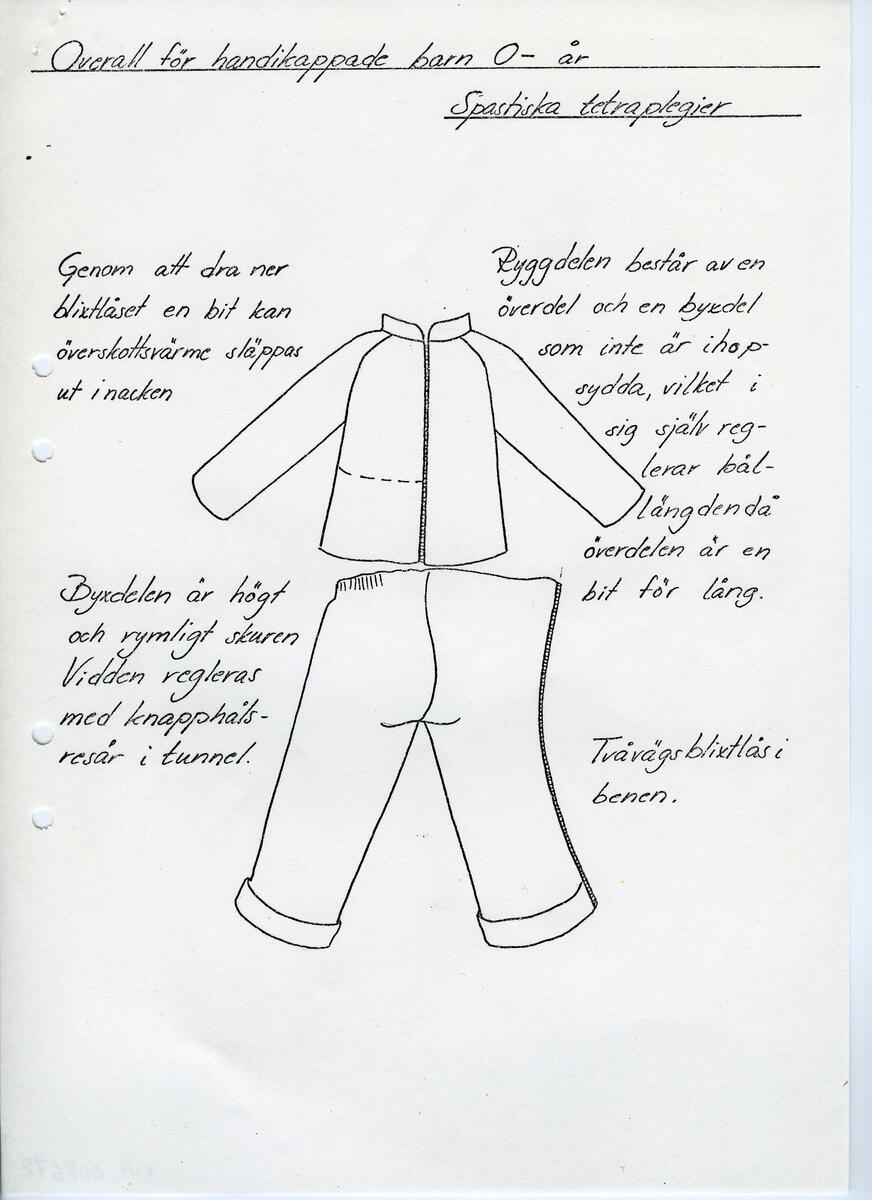 Overall för handikappade barn 0- år
Spastiska tetraplegier
Genom att dra ner
blixtlåset en bit kan
överskottsvärme släppas
ut i nacken
Ryggdelen består av en
överdel och en byxdel
som inte är ihop-
sydda, vilket i
sig själv reg-
lerar bål-
längden då
överdelen är en
bit för lång.
Byxdelen är högt
och rymligt skuren
Vidden regleras
med knapphåls-
resår i tunnel.
Tvåvägsblixtlås i
benen.